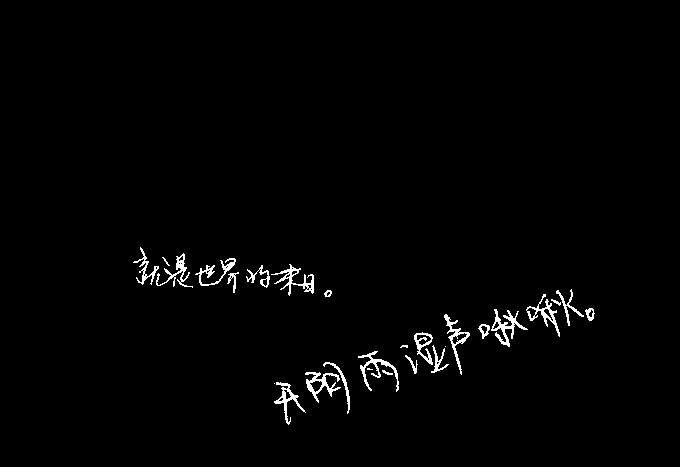 就是世界的末日。
天阴雨湿声啾啾。